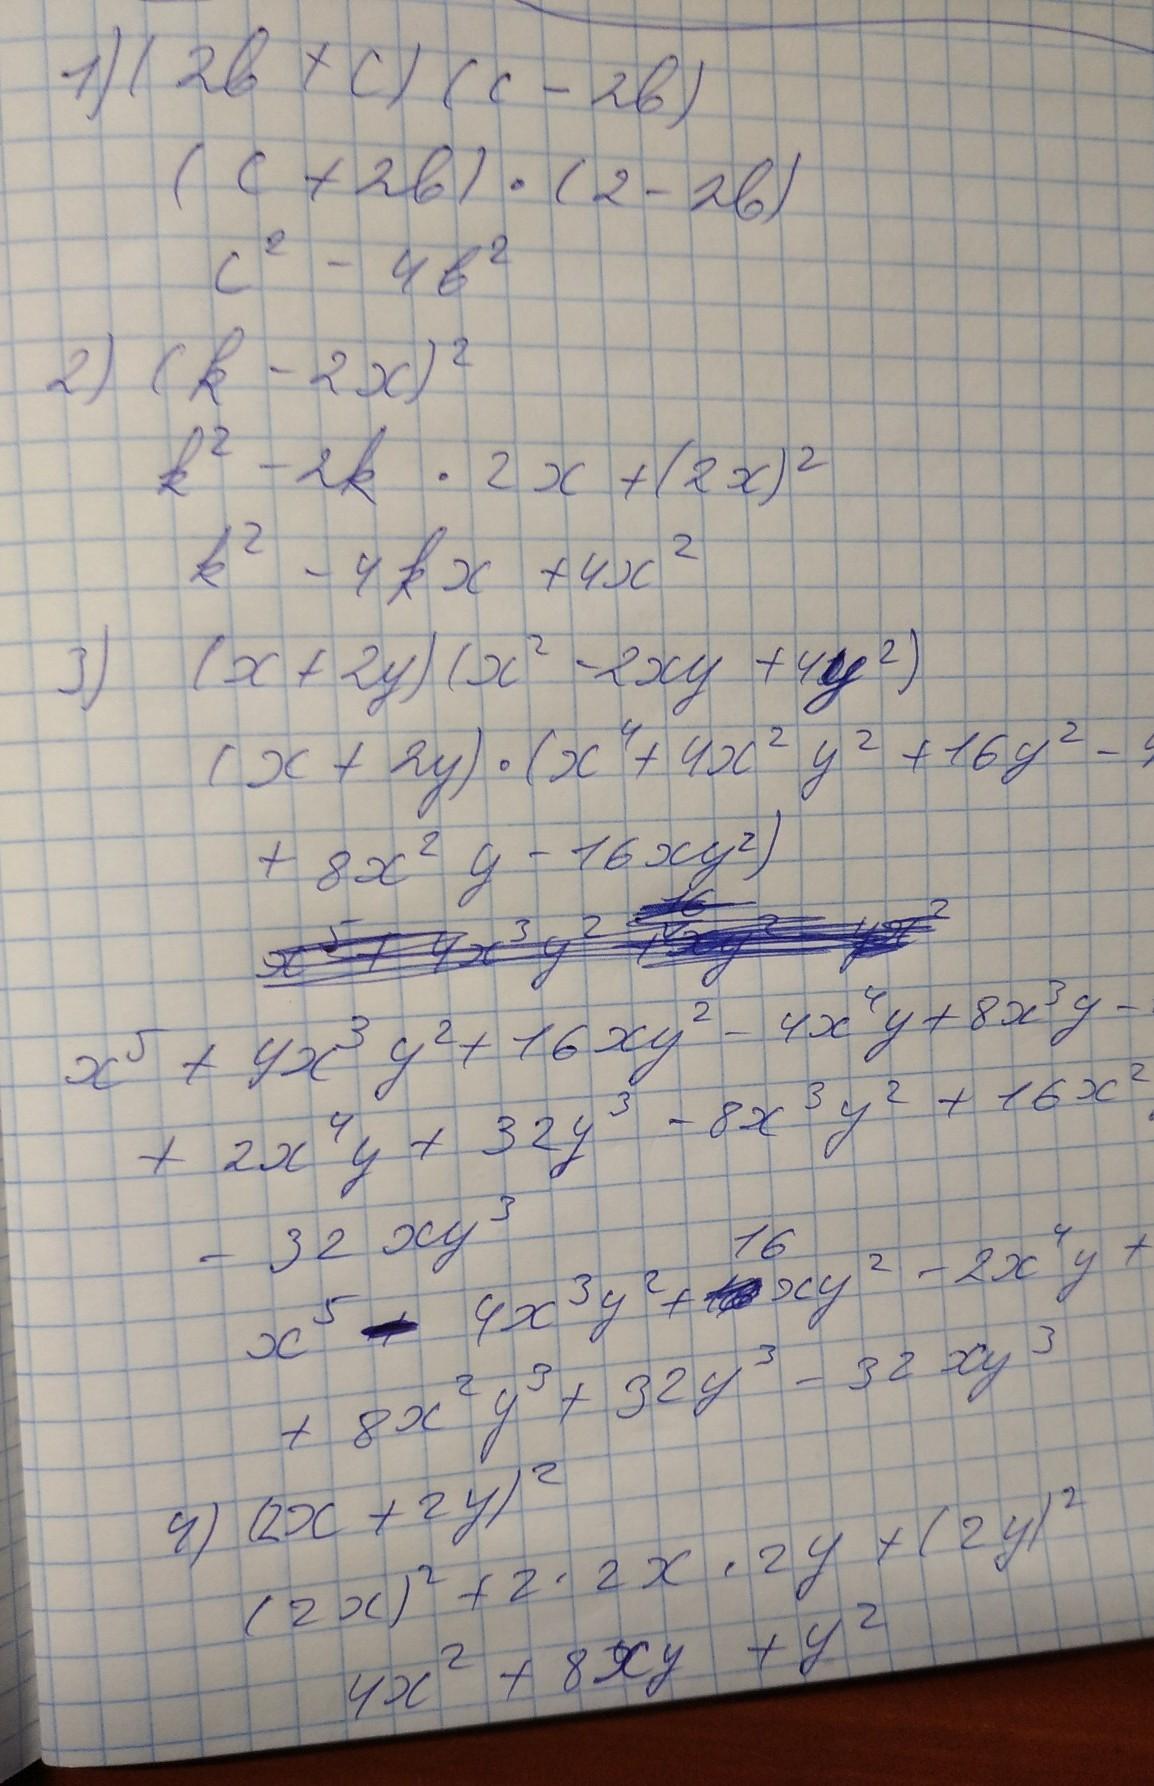 1) (2b + c) (c - 2b)
(c + 2b) · (2 - 2b)
c² - 4b²
2) (k - 2x)²
k² - 2k · 2x + (2x)²
k² - 4kx + 4x²
3) (x + 2y)(x² - 2xy + 4y²)
(x + 2y) · (x⁴ + 4x² y² + 16y² - 4
+ 8x² y - 16xy²)
x⁵ + 4x³y² + 16xy² - 4x⁴y + 8x³y -
+ 2x⁴y + 32y³ - 8x³y² + 16x²
- 32 xy³
x⁵ - 4x³y² + 16 xy² - 2x⁴y +
+ 8x²y³ + 32y³ - 32 xy³
4) (2x + 2y)²
(2x)² + 2 · 2x · 2y + (2y)²
4x² + 8xy + y²